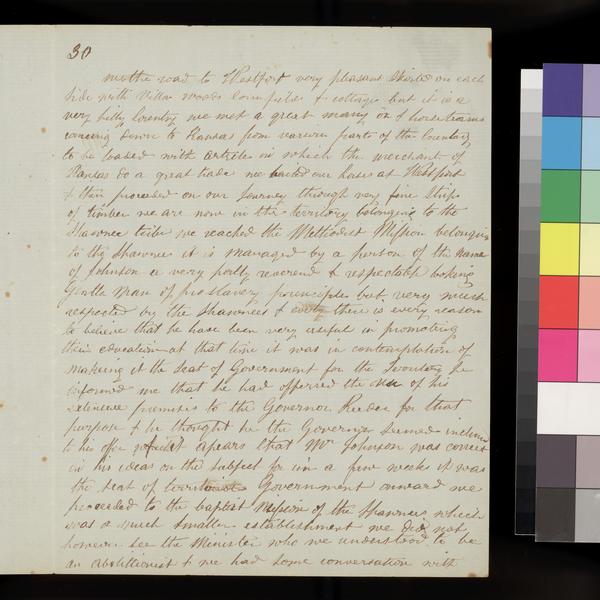 30
me the road to Westport very pleasant skirted on each
side with Villas woods cornfields & cottages but it is a
very hilly Country we met a great many ox & horse teams
coming down to Kansas from various parts of the Country
to be loaded with articles in which the merchant of
Kansas do a great trade we baited our horses at Westport
& then proceeded on our Journey through very fine strips
of timber we are now in the territory belonging to the
Shawnee tribe we reached the Methodist Mission belonging
to the Shawnees it is managed by a person of the name
of Johnson a very portly reverend & respectable looking
Gentle man of proslavery principles but very much
respected by the Shawnees & there is every reason
to believe that he have been very useful in promoting
their education at that time it was in contemplation of
making it the Seat of Government for the Teritory he
informed me that he had offerred the use of his
extensive premises to the Governor Reeder for that
purpose & he thought he the Governor seemed inclined
to his offer it apears that Mr Johnson was correct
in his ideas on the subject for in a few weeks it was
the seat of Government onward we
proceeded to the baptist Mission of the Shawnees which
was a much smaller establishment we did not
however see the Minister who we understood to be
an abolitionist & we had some conversation with